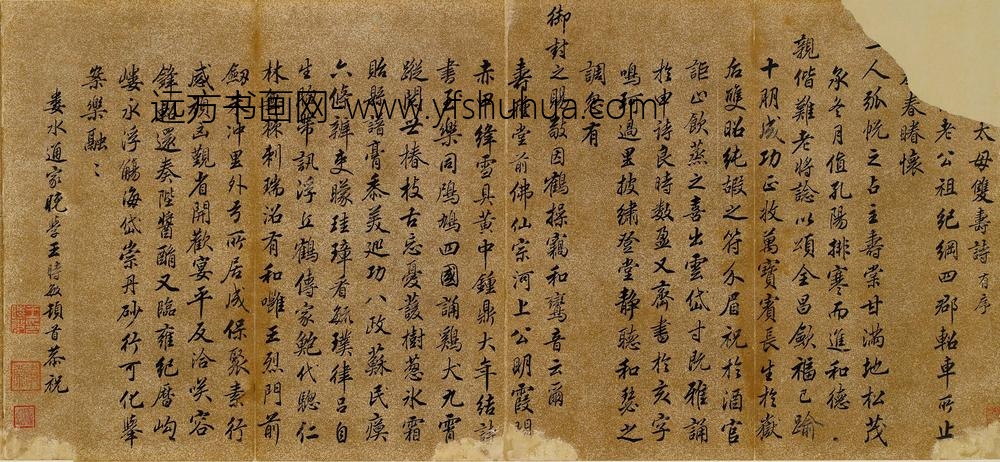 太母雙壽詩有序
老公祖紀綱四郡軺車所止
春睠懷
一人弧帨之占主壽棠甘滿地松茂
永冬月值孔陽排寒而進和德
親偕難老將諗以頌全昌斂福已踰
十朋成功正找萬寶賓長生於嶽
后雙昭純嘏之符介眉祝於酒官
詎止飲蒸之喜出雲岱寸既雅誦
於申詩良時數盈又齊書於亥字
鳴珂過里披繡登堂靜聽和瑟之
調有
御封之服敬因鶴操竊和鸞音云爾
壽堂前佛仙宗河上公明霞
赤絳雪具黃中鍾鼎大年結
書樂同鳲鳩四國誦鷄犬九霄
蹤閒士椿枝古忘憂蘐樹蔥冰霜
貽譜膏黍美巡功八政蘇民瘼
六條辨吏矇珪璋看毓璞律呂自
生常訊浮丘鶴傳家鮑代驄仁
林棘刺瑞沼有和雝王烈門前
劔沖里外弓所居成保聚素行
感覲省開歡宴平反洽咲容
鋒還奏陛醬酳又臨雍紀曆岣
嶁永浮觴海岱崇丹砂行可化舉
案樂融〻
婁水通家晚學王時敏頓首恭祝
远方书画网：www.yfshuhua.com